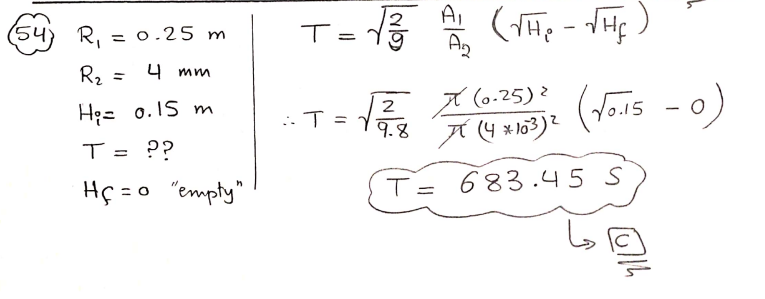 54 R₁ = 0.25 m
R₂ = 4 mm
Hᵢ = 0.15 m
T = ??
H_f = 0 "empty"
T = √(2/g) A₁/A₂ (√Hᵢ - √H_f)
∴ T = √(2/9.8) π(0.25)²/π(4*10⁻³)² (√0.15 - 0)
T = 683.45 S
↳ C